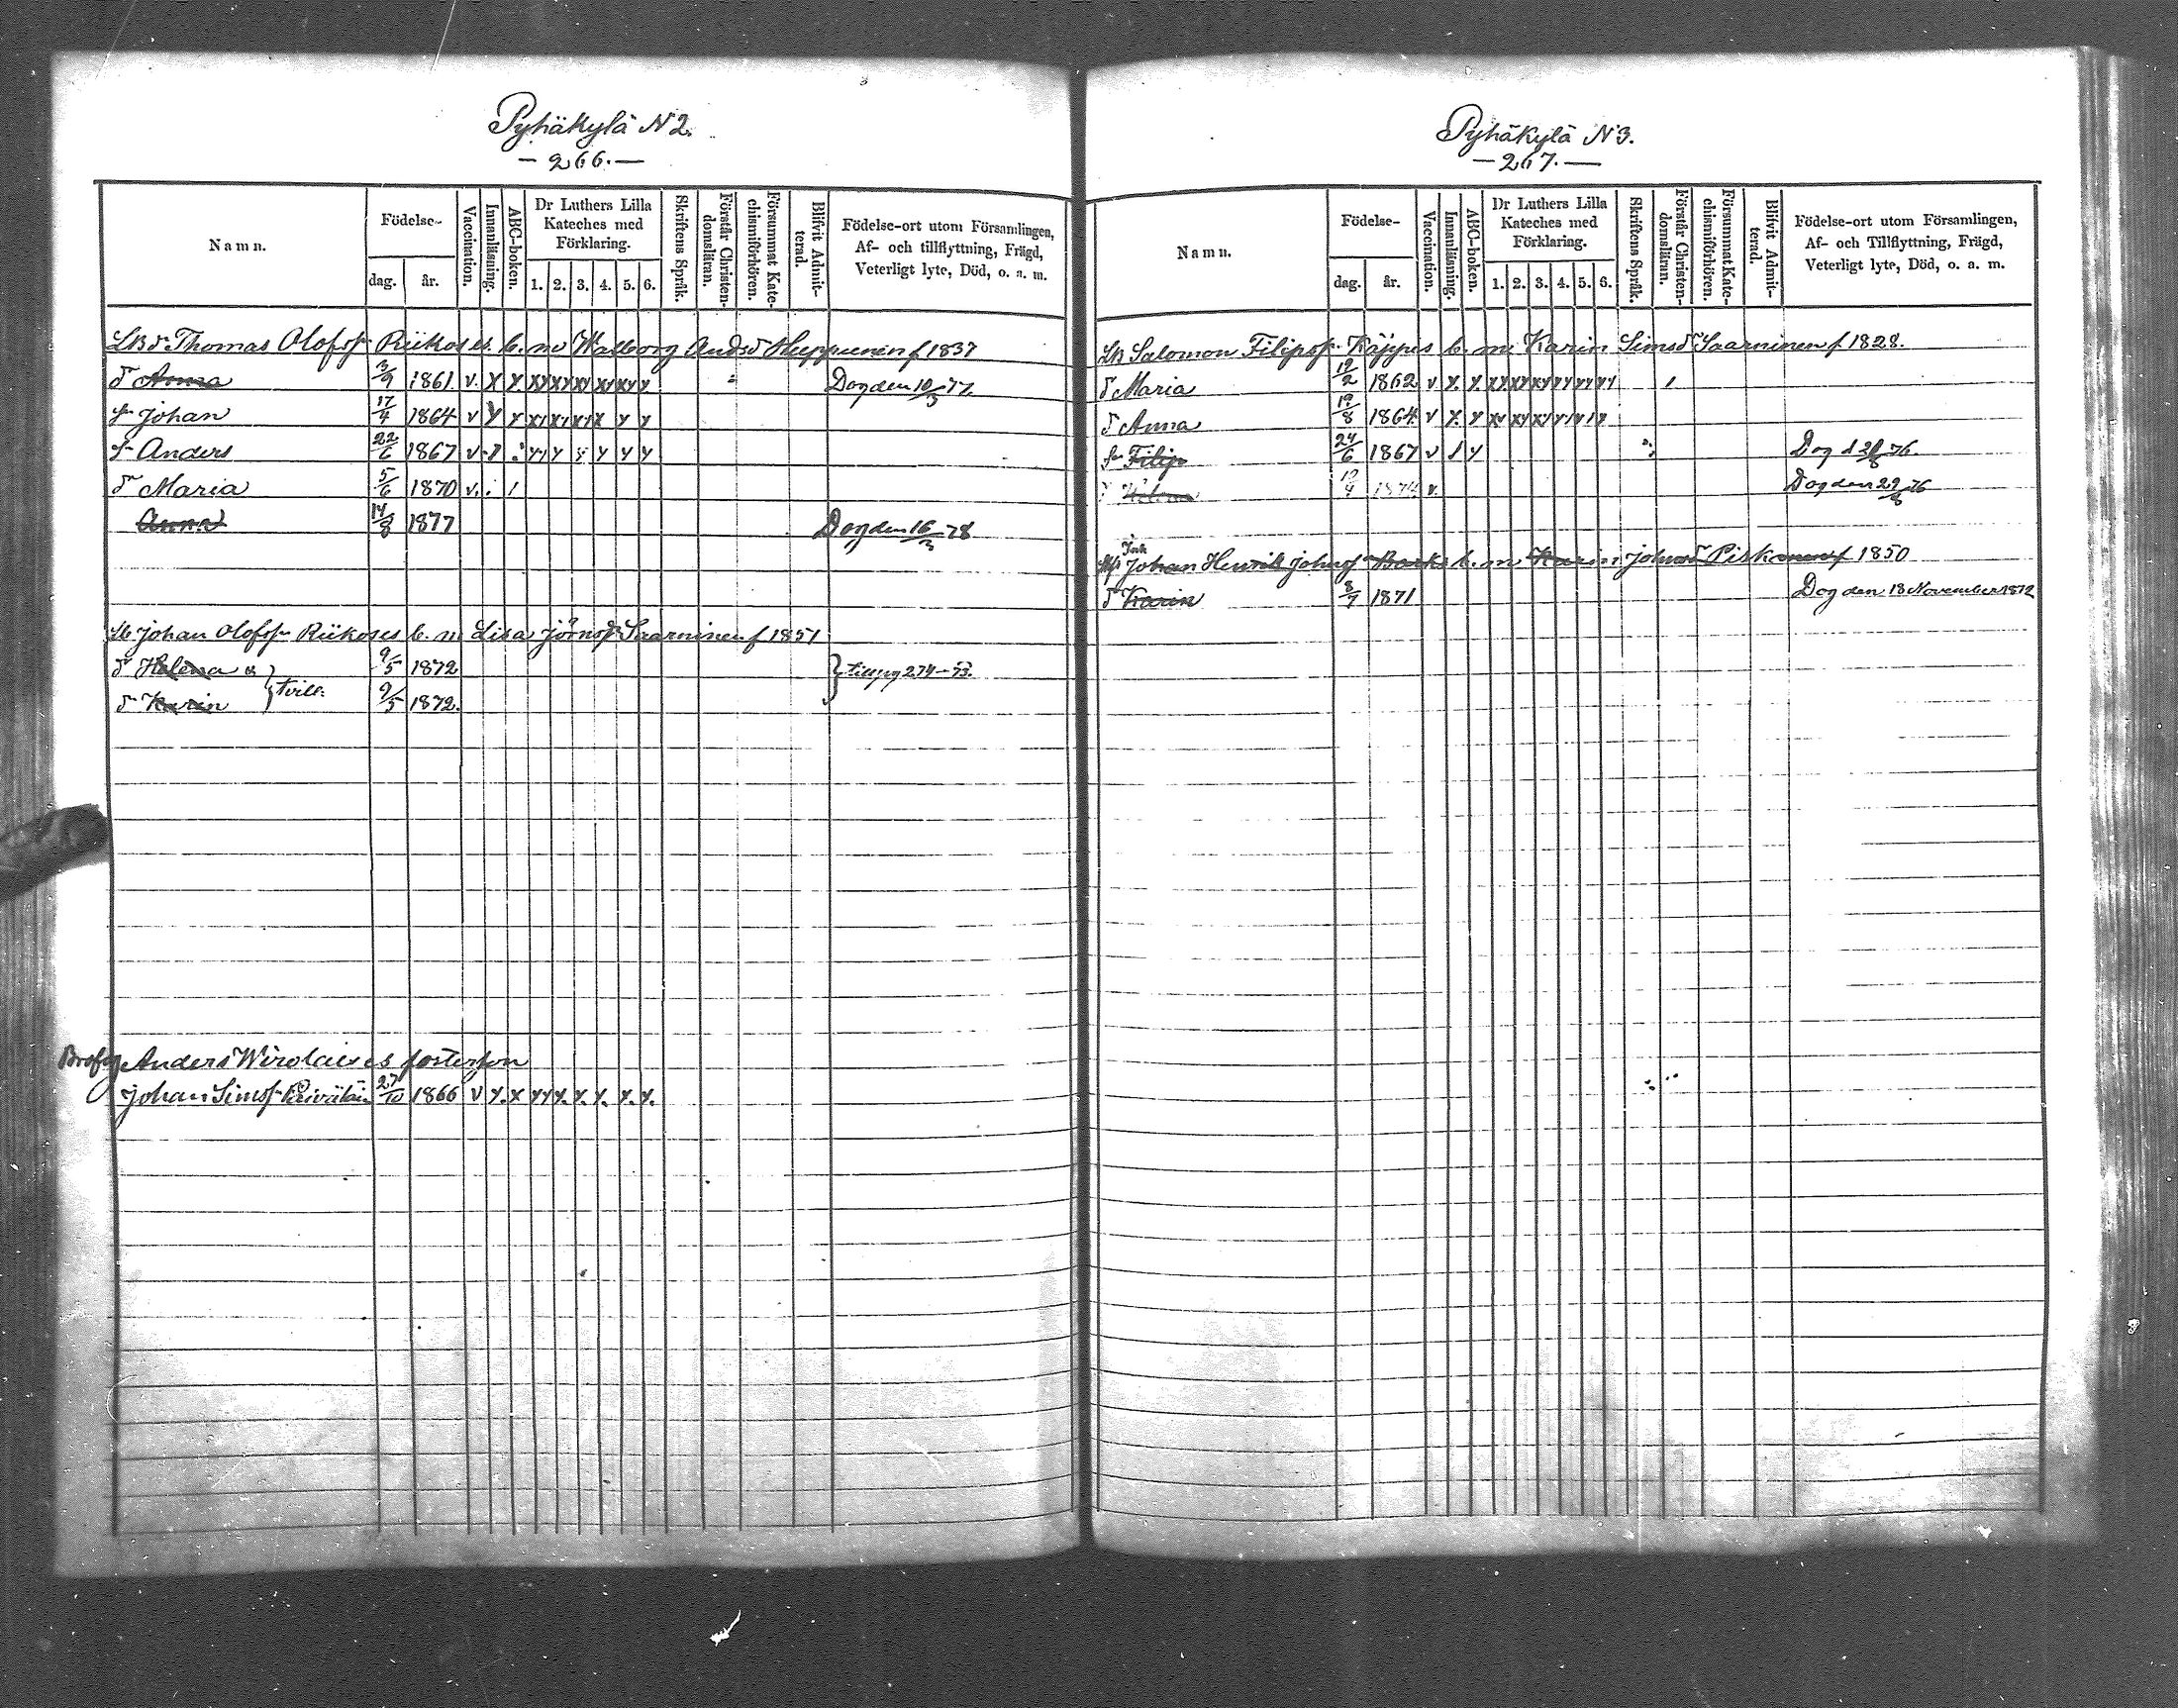 Pyhäkylä N 2.
— 266. —
Namn.
Födelse-
dag.
år.
Vaccination.
Innanläsning.
ABC-boken.
Dr Luthers Lilla
Kateches med
Förklaring.
1. 2. 3. 4. 5. 6.
Skriftens Språk.
Förstår Christen-
domsläran.
Försummat Kate-
chismiförhören.
Blifvit Admit-
terad.
Födelse-ort utom Församlingen,
Af- och tillflyttning, Frägd,
Veterligt lyte, Död, o. a. m.
Thomas Olofss. Riikoses b. m Walborg Andsd Huppunen f 1837
d Anna 3/9 1861 v. x x. xy xy xy xy xy y. Dog den 10/3 77.
s Johan 17/4 1864 v y y y y
s Anders 22/6 1867 v y y y y
d Maria 5/6 1870 v.
Anna 14/8 1877 Dog den 16/3 78
Johan Olofss Riikoses b. m Lisa Saarninen f 1851
d Helena & 9/5 1872
d Karin } tvill: 9/5 1872. } till pg 274—73.
Anders Wirolaises fosterson
Johan Simss 27/10 1866 v y. x yy y. y. y. y. y.
Pyhäkylä N 3.
— 267. —
Namn.
Födelse-
dag.
år.
Vaccination.
Innanläsning.
ABC-boken.
Dr Luthers Lilla
Kateches med
Förklaring.
1. 2. 3. 4. 5. 6.
Skriftens Språk.
Förstår Christen-
domsläran.
Försummat Kate-
chismiförhören.
Blifvit Admit-
terad.
Födelse-ort utom Församlingen,
Af- och Tillflyttning, Frägd,
Veterligt lyte, Död, o. a. m.
Salomon Filipss Käppis b. m. Karin Simsd Saarninen f 1828.
d Maria 12/2 1862 v y. y.
d Anna 19/8 1864 v y. y
s Filip 24/6 1867 v / y Dog d 76.
d Helena v. Dog den 29/8 76
Johan Henrik Johnss b. m. Karin Johnsd Piskonen f 1850
d Karin 8/7 1871 Dog den 18 November 1872